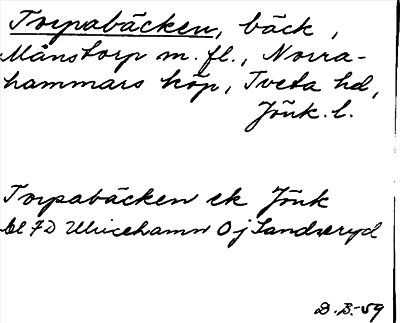 Torpabäcken, bäck,
Månstorp m. fl., Norra-
hammars köp, Tveta hd,
Jönk. l.
Torpabäcken ek Jönk
bl 7D Ulricehamn O j Sandseryd
D. B. -59